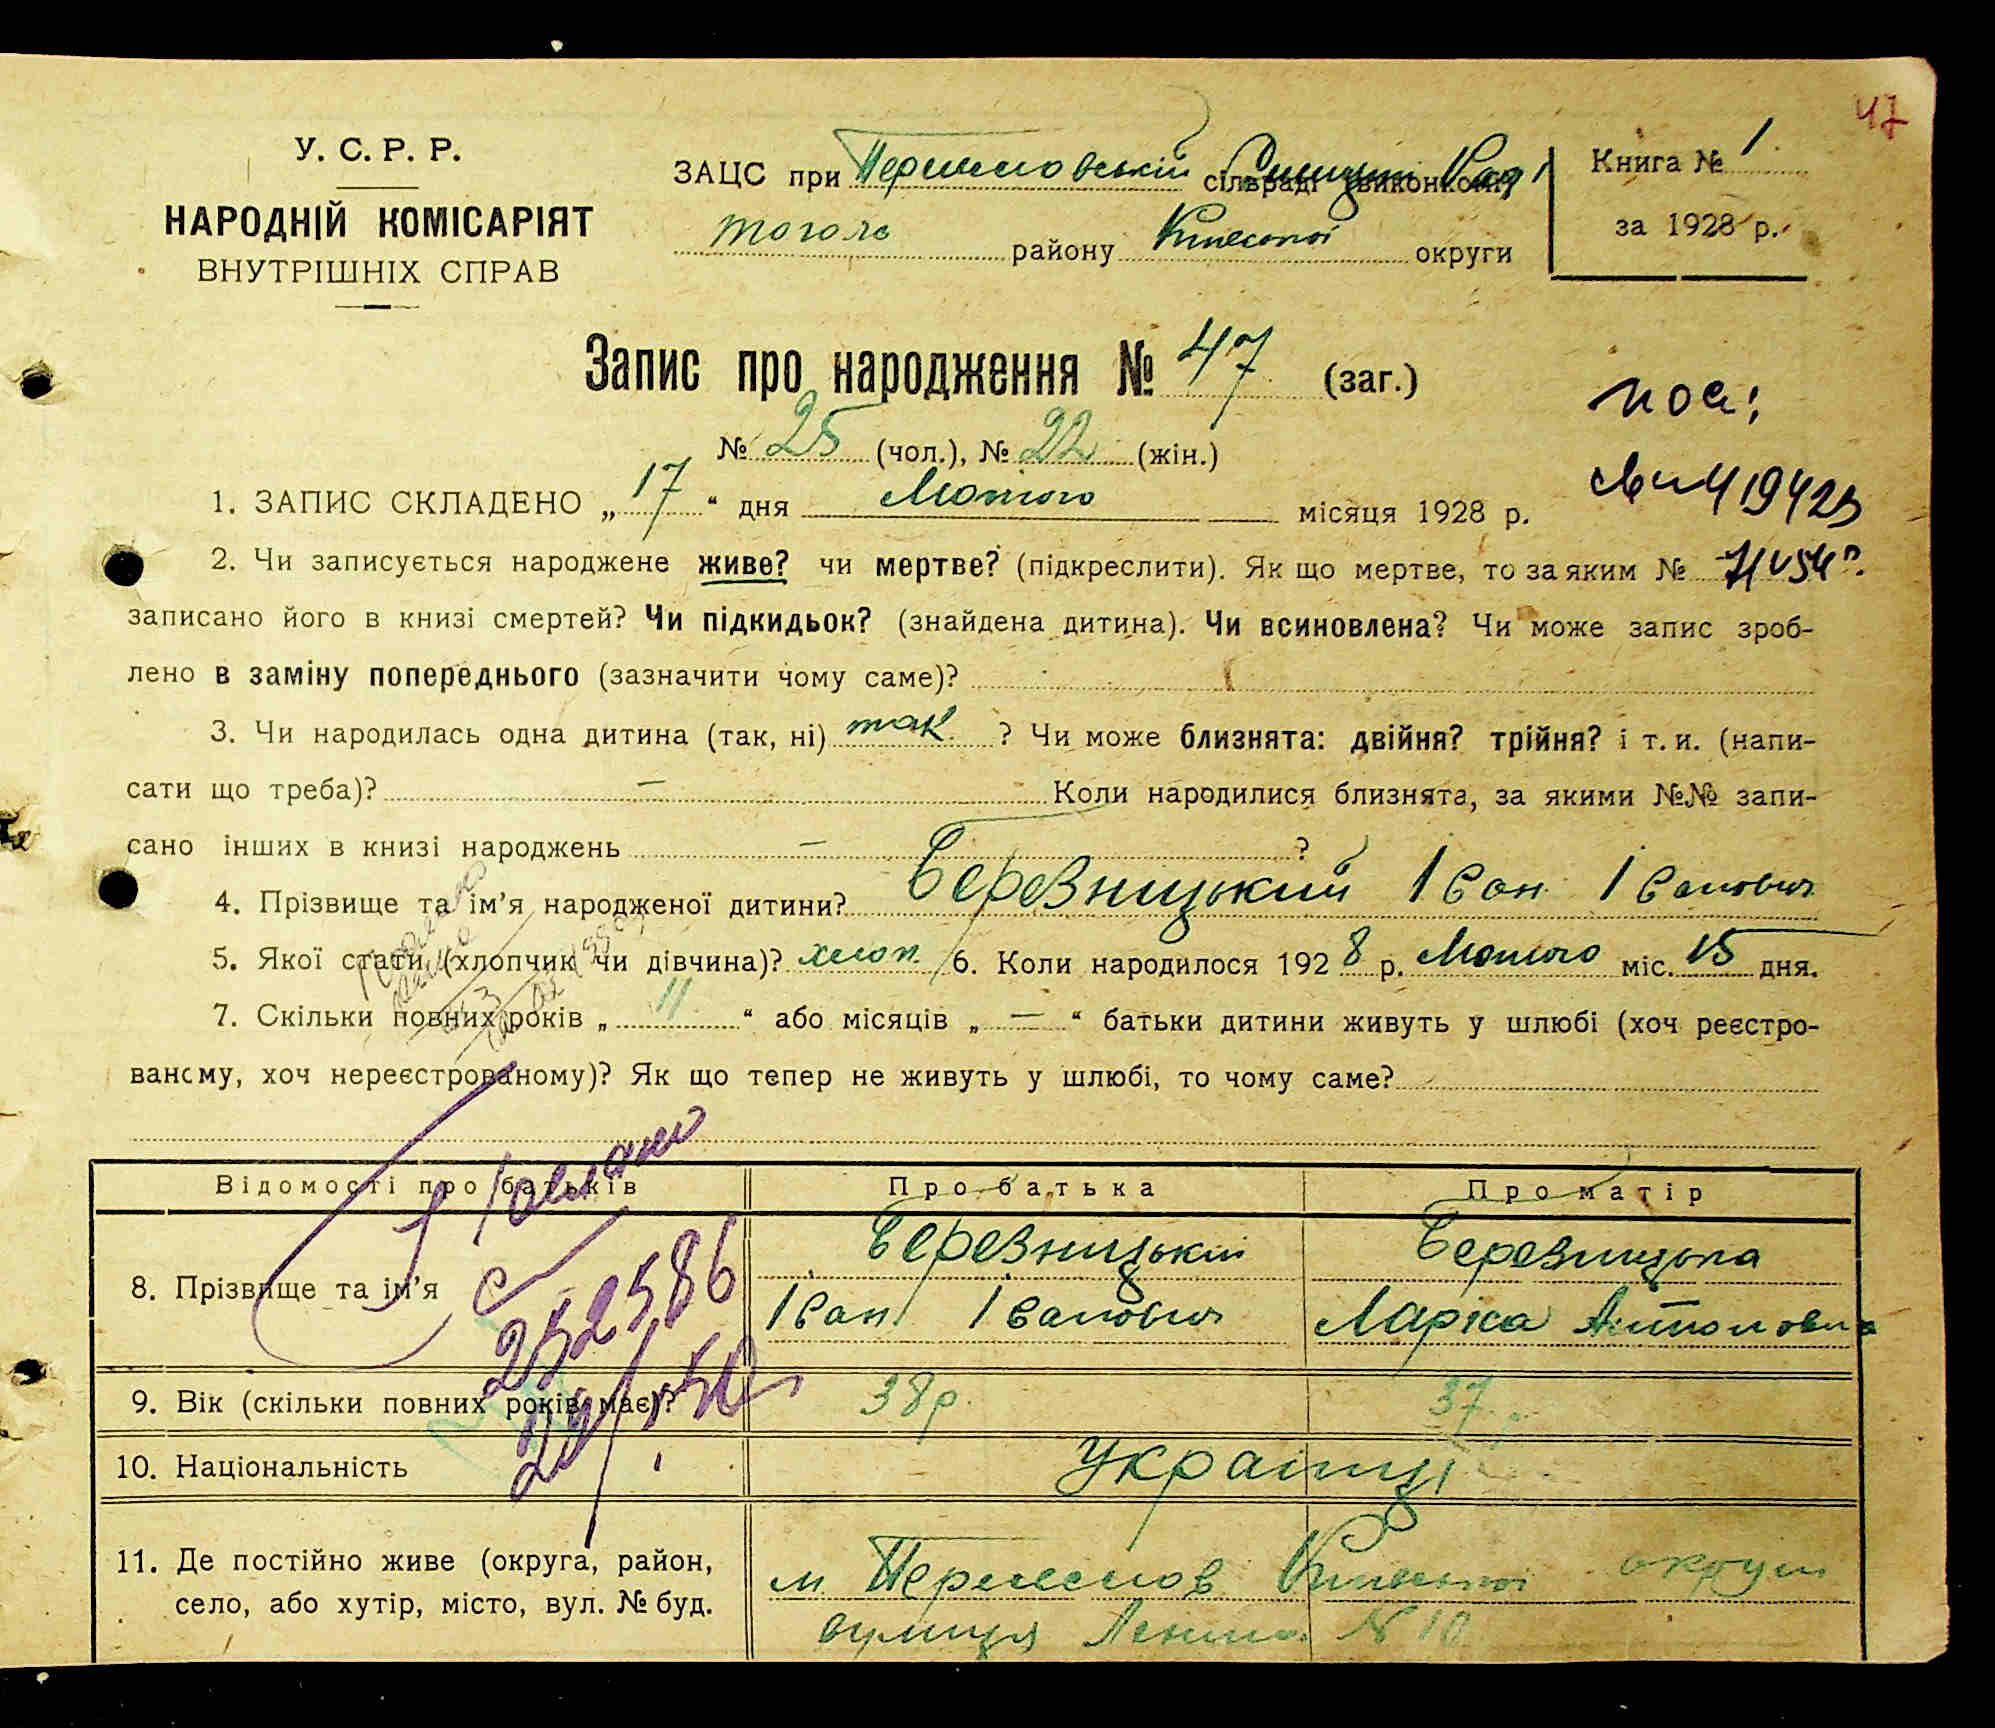 47
У. С. Р. Р.
НАРОДНІЙ КОМІСАРІЯТ
ВНУТРІШНІХ СПРАВ
ЗАЦС при сільраді (виконкомі)
того ж району Київської округи
Книга № 1
за 1928 р.
Запис про народження № 47 (заг.)
№ 25 (чол.), № 22 (жін.)
1. ЗАПИС СКЛАДЕНО „ 17 “ дня Лютого місяця 1928 р.
2. Чи записується народжене живе? чи мертве? (підкреслити). Як що мертве, то за яким №
записано його в книзі смертей? Чи підкидьок? (знайдена дитина). Чи всиновлена? Чи може запис зроб-
лено в заміну попереднього (зазначити чому саме)?
3. Чи народилась одна дитина (так, ні) так. ? Чи може близнята: двійня? трійня? і т. и. (напи-
сати що треба)? — Коли народилися близнята, за якими №№ запи-
сано інших в книзі народжень — ?
4. Прізвище та ім’я народженої дитини? Березницький Іван Іванович
5. Якої стати (хлопчик чи дівчина)? хлоп. 6. Коли народилося 1928 р. Лютого міс. 15 дня.
7. Скільки повних років „ 11 “ або місяців „ — “ батьки дитини живуть у шлюбі (хоч реєстро-
ваному, хоч нереєстрованому)? Як що тепер не живуть у шлюбі, то чому саме?
Відомості про батьків Про батька Про матір
8. Прізвище та ім’я Березницькій Березницька
Іван Іванович Лариса Антоновна
252586
9. Вік (скільки повних років має)? 38 р. 37 р.
10. Національність Українці
11. Де постійно живе (округа, район, м. Київської округи
село, або хутір, місто, вул. № буд. вулиця Леніна № 10